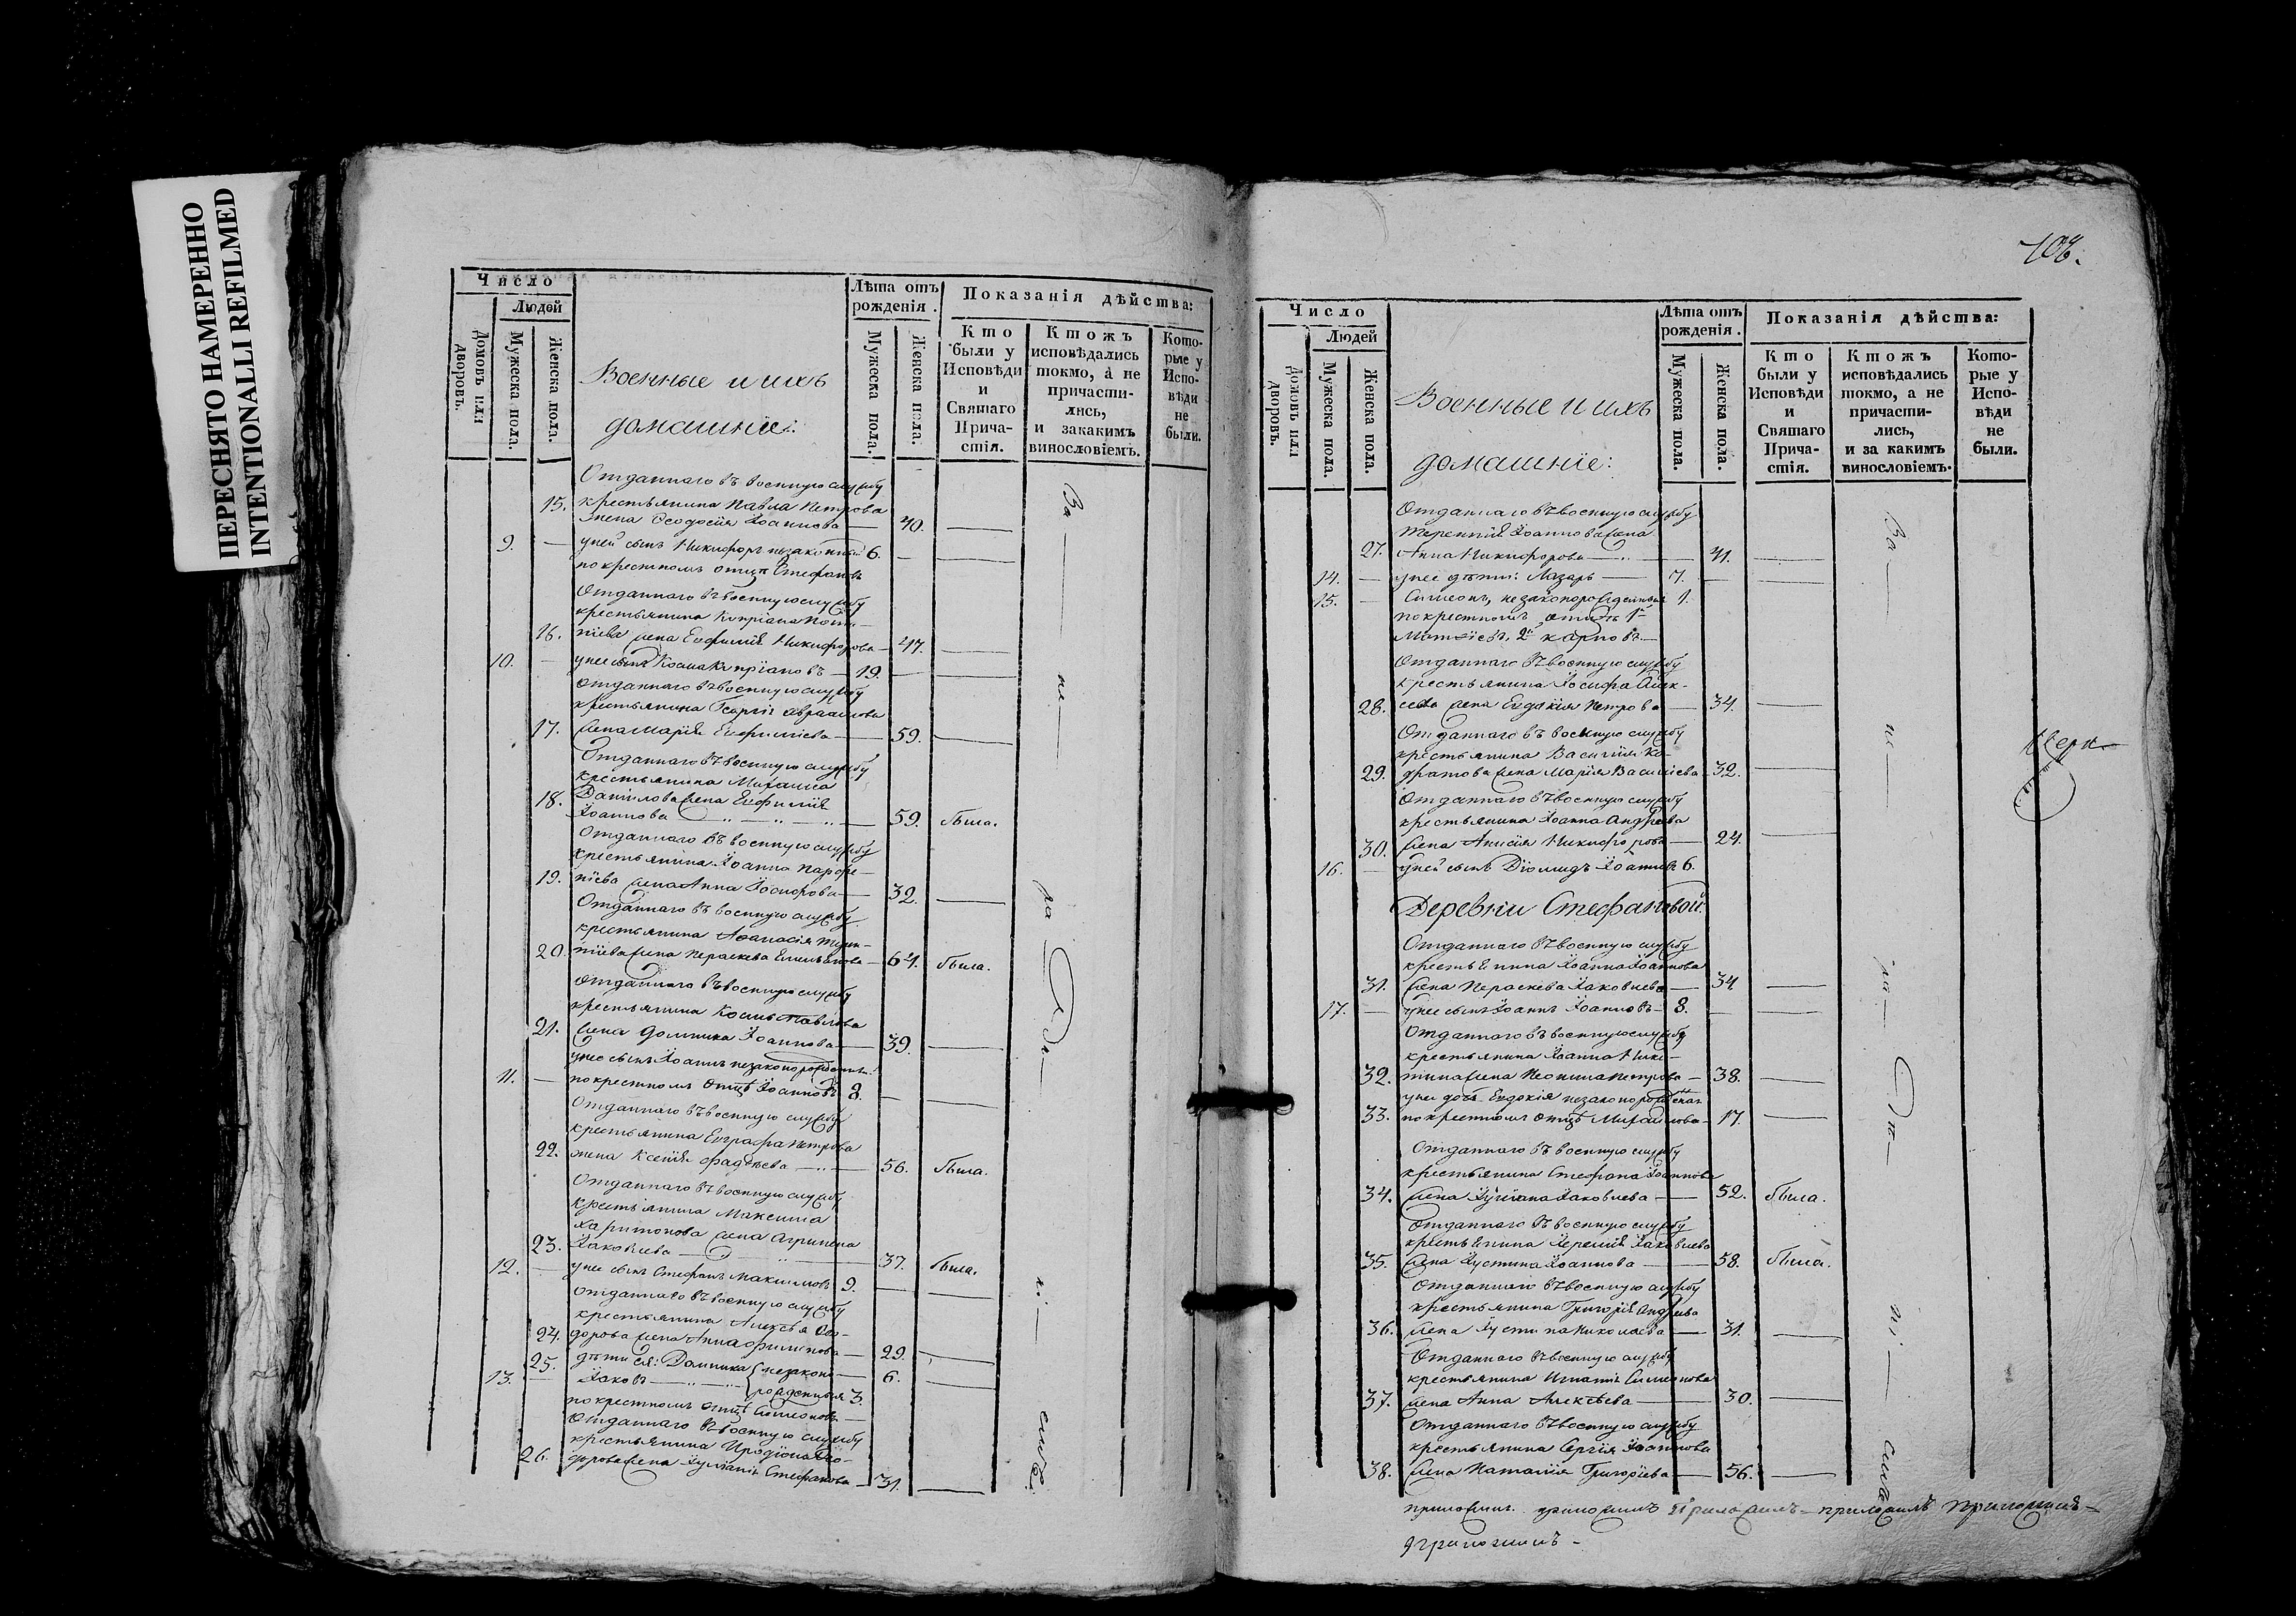 ПЕРЕСНЯТО НАМЕРЕННО
INTENTIONALLI REFILMED
Число
Людей
Домовъ или дворовъ.
Мужеска пола.
Женска пола.
Военные и ихъ
домашнiе:
Лѣта отъ рожденія.
Мужеска пола.
Женска пола.
Показанія дѣйства:
Кто были у Исповѣди и Святаго Причастія.
Ктожъ исповѣдались токмо, а не причастились, и закакимъ винословіемъ.
Которые у Исповѣди не были.
Отданнаго въ военную службу
15. крестьянина Павла Петрова
жена Ѳеодосія Іоаннова 40.
9. у ней сынъ Никифоръ незаконный 6.
по крестномъ отцѣ Стефановъ
Отданнаго въ военную службу
крестьянина Кипріана
16. жена Евфимія Никифорова 47.
10. у нее сынъ Козма Кипріановъ 19.
Отданнаго въ военную службу
крестьянина Георгія Авраамова
17. жена Марія Евфиміева 59.
Отданнаго въ военную службу
крестьянина Михаила
18. Данилова жена Евфимія
Іоаннова 59. была.
Отданнаго въ военную службу
крестьянина Іоанна Парфе-
19. нiева жена Анна Іосифова 32.
Отданнаго въ военную службу
крестьянина Аѳанасія Терен-
20. тіева жена Параскева Емельянова 64. была.
Отданнаго въ военную службу
крестьянина Космы Павлова
21. жена Домника Іоаннова 39.
у нее сынъ Іоаннъ незаконорожденный
11. по крестномъ отцѣ Іоанновъ 8.
Отданнаго въ военную службу
крестьянина Евграфа Петрова
22. жена Ксенія Фадѣева 56. была.
Отданнаго въ военную службу
крестьянина Максима
Харитонова жена Агрипена
23. Іаковлева 37. была.
12. у нее сынъ Стефанъ Максимовъ 9.
Отданнаго въ военную службу
крестьянина Алексѣя Ѳео-
24. дорова жена Анна Филипова 29.
25. дѣти ея: Домника незаконо- 6.
13. Іаковъ рожденныя 3.
по крестномъ отцѣ Симеоновы
Отданнаго въ военную службу
крестьянина Иродіона Ѳео-
26. дорова жена Іуліанія Стефанова 31.
За не
108.
Число
Людей
Домовъ или дворовъ.
Мужеска пола.
Женска пола.
Военные и ихъ
домашніе:
Лѣта отъ рожденія.
Мужеска пола.
Женска пола.
Показанія дѣйства:
Кто были у Исповѣди и Святаго Причастія.
Ктожъ исповѣдались токмо, а не причастились, и за какимъ винословіемъ.
Которые у Исповѣди не были.
Отданнаго въ военную службу
Терентія Іоаннова жена
27. Анна Никифорова 41.
14. у нее дѣти: Лазарь 7.
15. Симеонъ, незаконорожденныя 1.
по крестномъ отцѣ 1й
Матѳіевъ, 2й Карповъ
Отданнаго въ военную службу
крестьянина Іосифа Алек-
28. сеева жена Евдокія Петрова 34.
Отданнаго въ военную службу
крестьянина Василія Ко-
29. дратова жена Марія Василіева 32.
Отданнаго въ военную службу
крестьянина Іоанна Андреева
30. жена Анисія Никифорова 24.
16. у ней сынъ Діомидъ Іоанновъ 6.
Деревни Стефановой:
Отданнаго въ военную службу
крестьянина Іоанна Іоаннова
31. жена Параскева Іаковлева 34
17. у нее сынъ Іоаннъ Іоанновъ 8.
Отданнаго въ военную службу
крестьянина Іоанна Ники-
32. тина жена Неонила Петрова 38.
у нее дочь Евдокія незаконорожденная
33. по крестномъ отцѣ Михайлова 17.
Отданнаго въ военную службу
крестьянина Стефана Іоаннова
34. жена Іуліана Іаковлева 52. была.
Отданнаго въ военную службу
крестьянина Іереміи Іаковлева
35. жена Іустина Іоаннова 58. была.
Отданнаго въ военную службу
крестьянина Григорія Андреева
36. жена Іустина Николаева 31.
Отданнаго въ военную службу
крестьянина Игнатія Симеонова
37. жена Анна Алексѣева 30.
Отданнаго въ военную службу
крестьянина Сергія Іоаннова
38. жена Наталія Григоріева 56.
За не